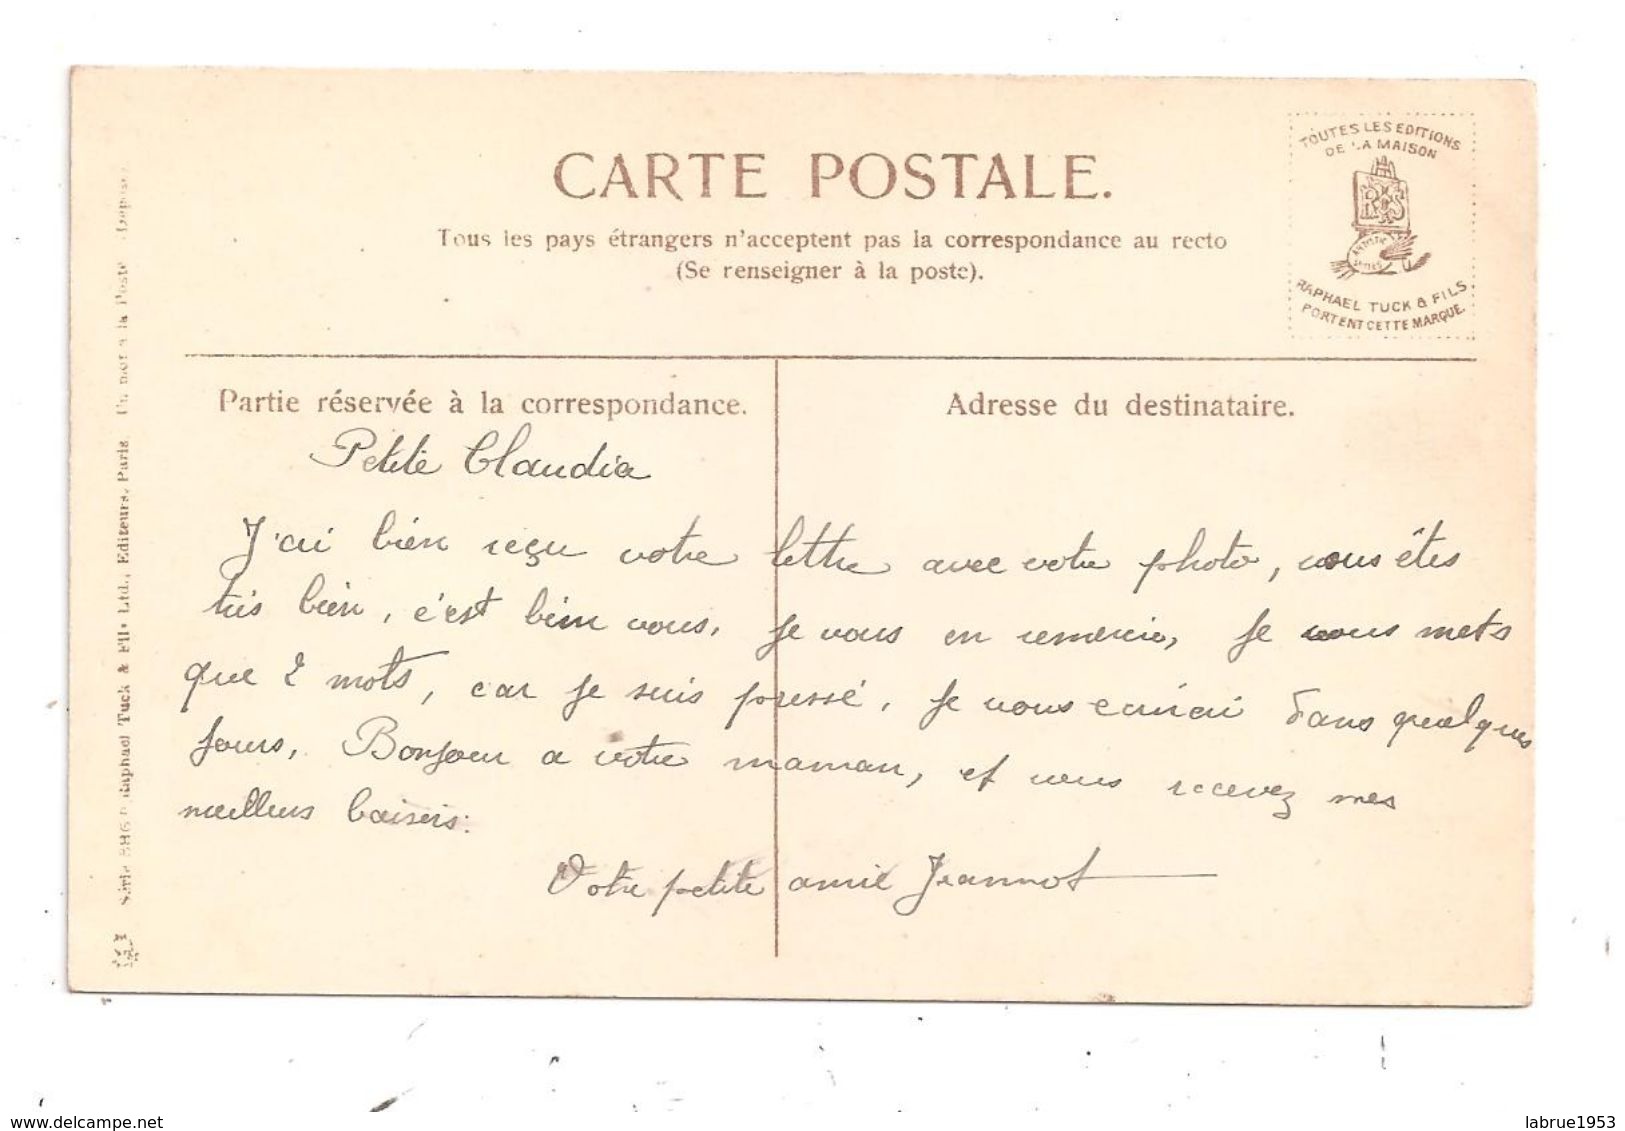 CARTE POSTALE.
Tous les pays étrangers n'acceptent pas la correspondance au recto
(Se renseigner à la poste).
TOUTES LES EDITIONS
DE LA MAISON
ARTISTIC
SERIES
RAPHAEL TUCK & FILS
PORTENT CETTE MARQUE.
Partie réservée à la correspondance.
Adresse du destinataire.
Petite Claudia
J'ai bien reçu votre lettre avec votre photo, vous êtes
très bien, c'est bien vous, je vous en remercie, Je vous mets
que 2 mots, car je suis pressé, Je vous écrirai dans quelques
jours, Bonjour a votre maman, et vous recevez mes
meilleurs baisers.
Votre petite amie Jeannot
Raphael Tuck & Fils Ltd., Editeurs, Paris. Un mot à la Poste
delcampe.net
labrue1953